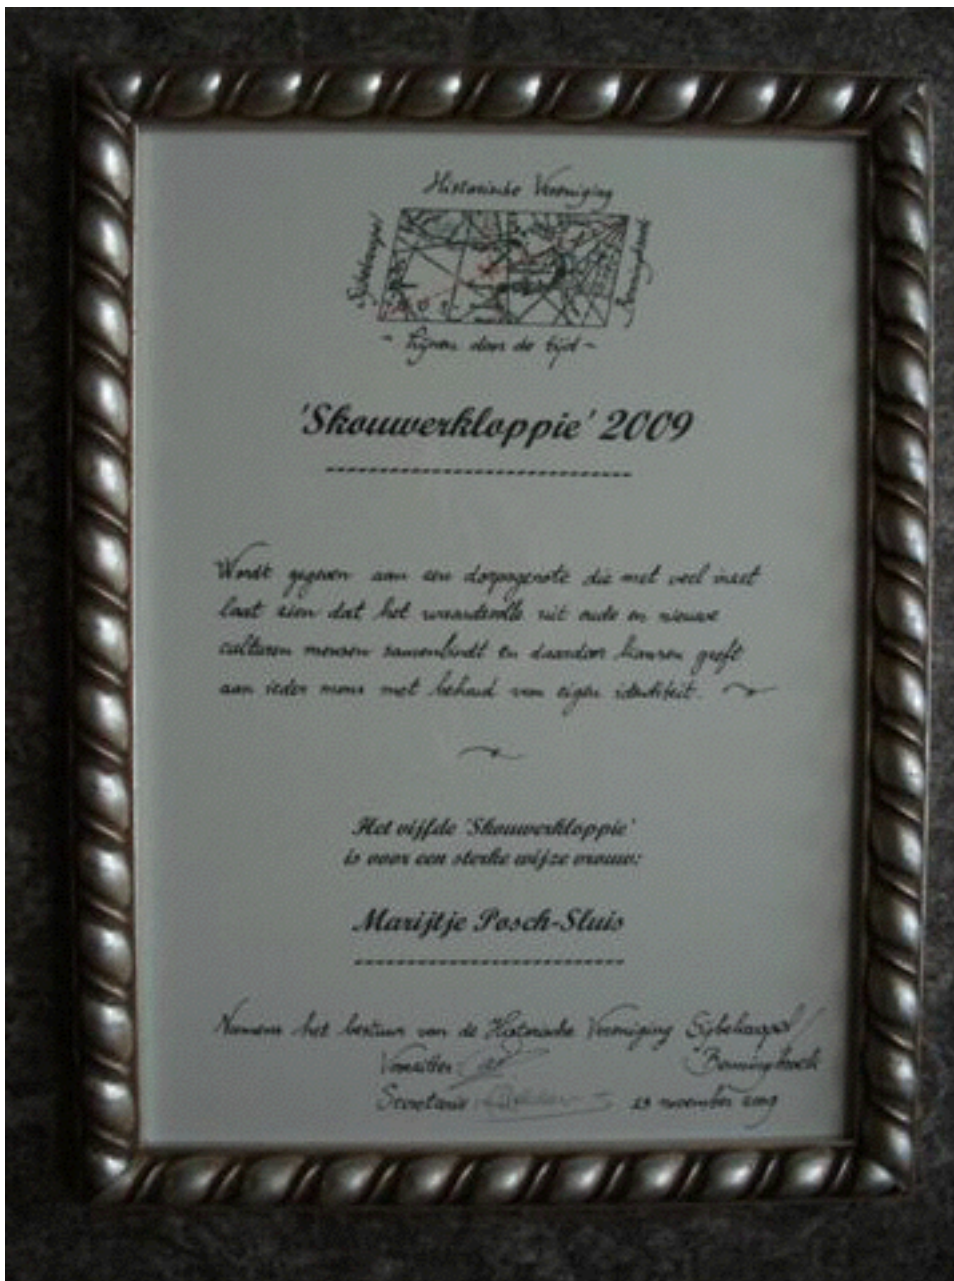 Historische Vereniging
Sijbekarspel
Benningbroek
~ lijnen door de tijd ~
'Skouwerkloppie' 2009
Wordt gegeven aan een dorpsgenote die met veel inzet
laat zien dat het waardevolle uit oude en nieuwe
culturen mensen samenbindt en daardoor kansen geeft
aan ieder mens met behoud van eigen identiteit.
Het vijfde 'Skouwerkloppie'
is voor een sterke wijze vrouw:
Marijtje Posch-Sluis
Namens het bestuur van de Historische Vereniging Sijbekarspel/
Voorzitter Benningbroek
Secretaris 29 november 2009